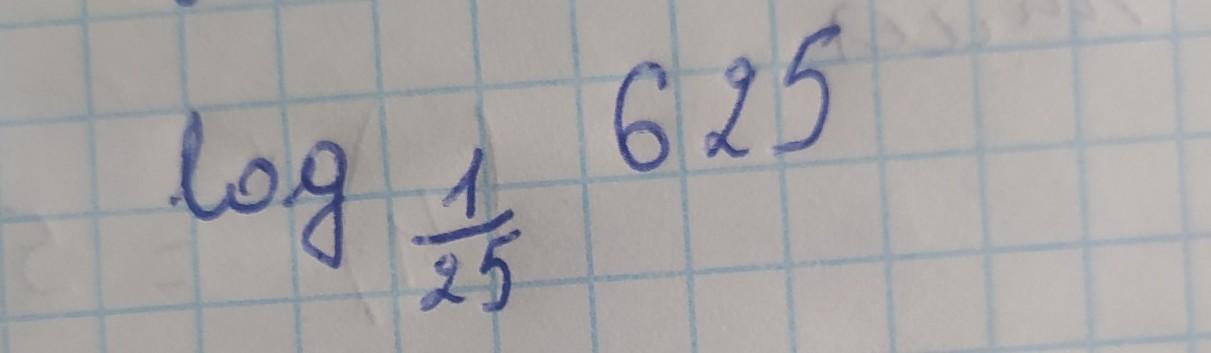 log 1/25 625